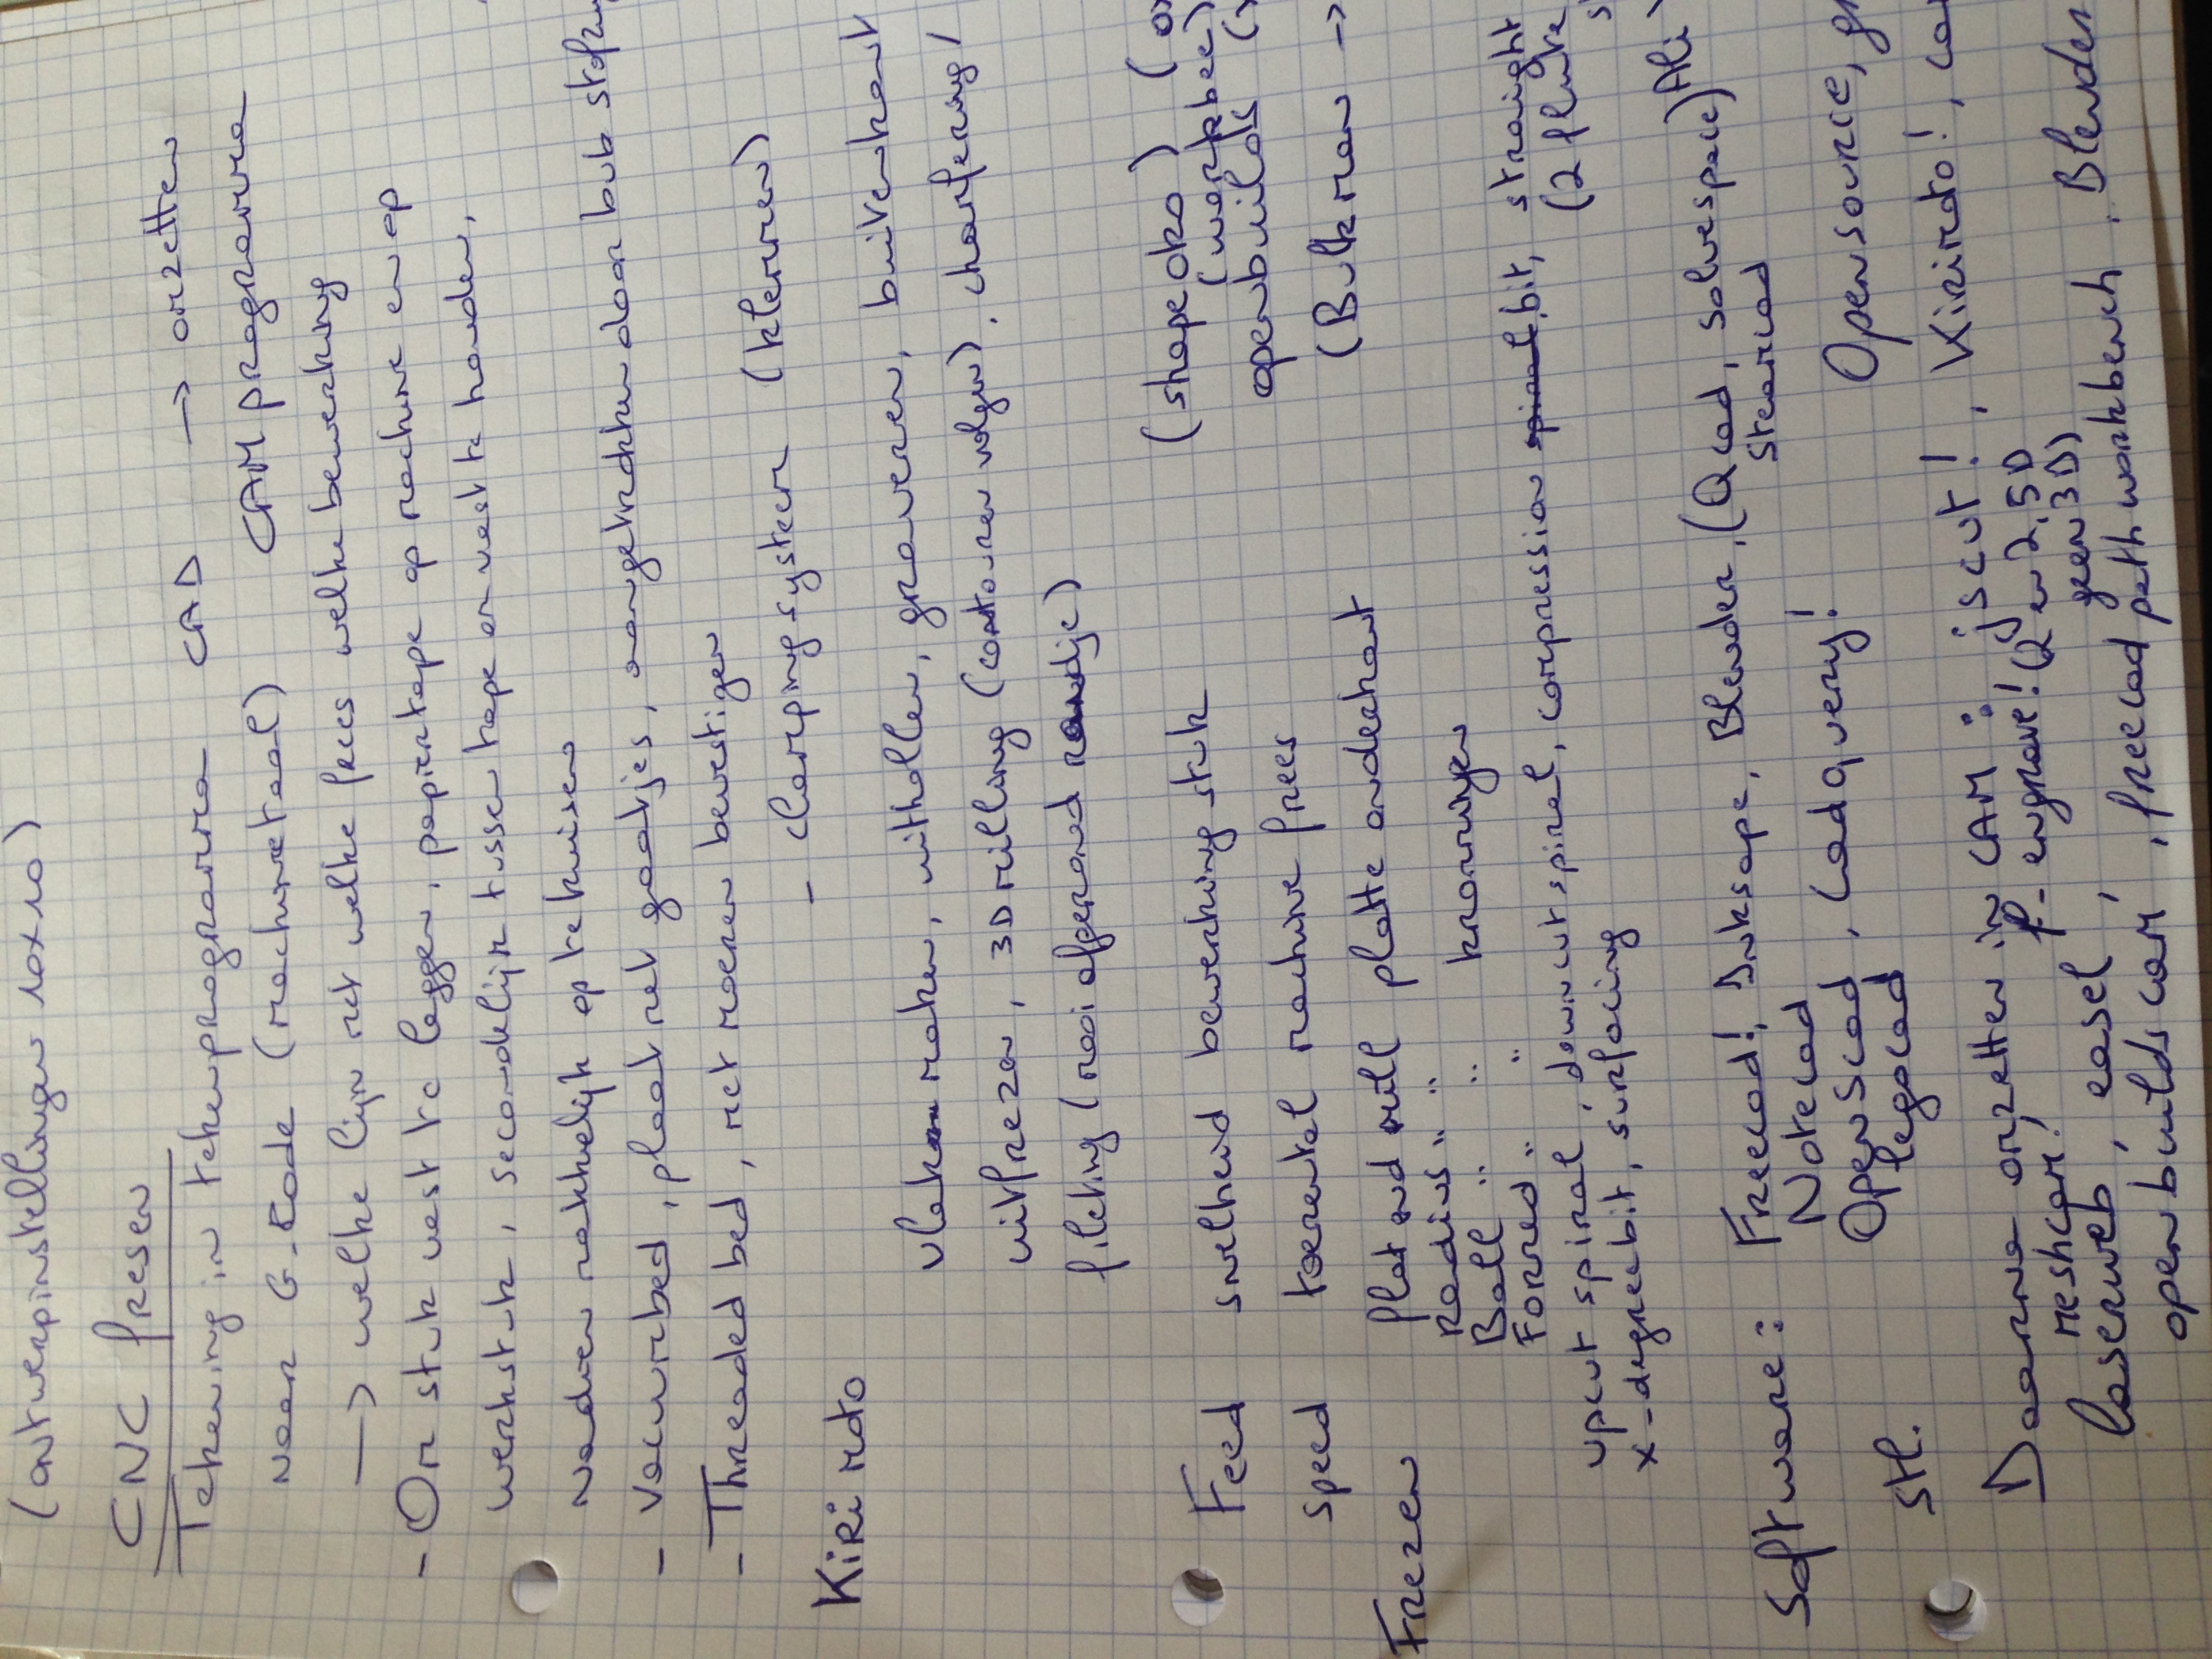 (ontwerpinstellingen 10x10)
CNC frezen
Tekening in tekenprogramma CAD → omzetten
naar G-Code (machinetaal) CAM programma
→ welke lijn met welke frees welke bewerking
- Om stuk vast te leggen, papiertape op machine en op
werkstuk, secondelijm tussen tape om vast te houden,
nadien makkelijk op te kuisen
- Vacuumbed, plaat met gaatjes, aangetrokken door
- Threaded bed, met moeren bevestigen
- clamping systeem (klemmen)
KiRi moto
vlak maken, uithollen, graveren, buitenkant
uitfrezen, 3D milling (contouren volgen), chamfering /
fileting (mooi afgerond randje)
Feed snelheid bewerking stuk (shapeoko)
(workbee)
openbuilds
Speed toerental machine frees (Bulkman →
Frezen flat end mill platte onderkant
Radius " "
Ball " " kromming
Formed " "
upcut spiral, downcut spiral, compression spiral bit, straight
(2 flute
x-degree bit, surfacing
Software: Freecad!, Inksape, Blender, (Qcad, solvespace)
Notecad
OpenScad, Cadquery!
legocad
Stl. Opensource,
Daarna omzetten in CAM: jscut!, Kirimoto!,
meshcam, f-engrave! (2 en 2,5D
geen 3D)
laserweb, easel, freecad path workbench. Blender
openbuilds cam,